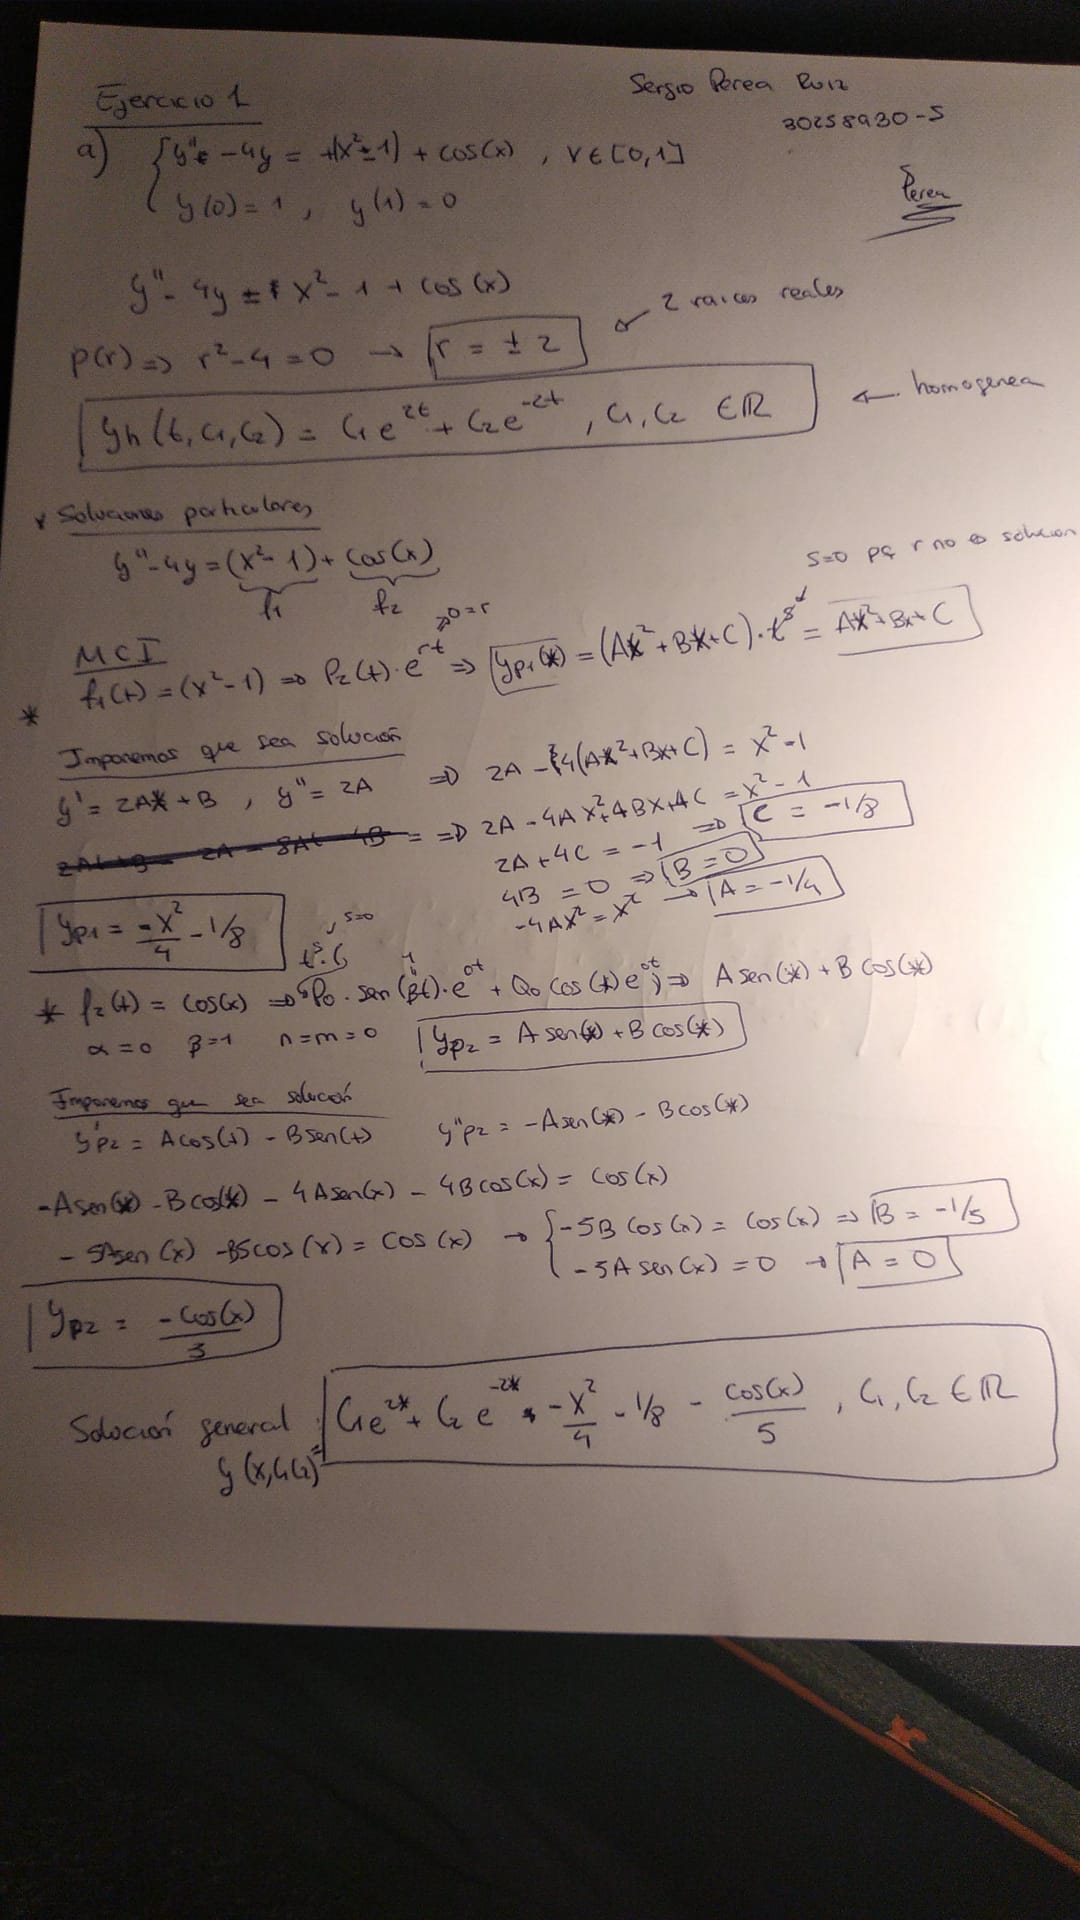 Sergio Perea Ruiz
30258930-S
Perea
Ejercicio 1
a) { y'' - 4y = (x² - 1) + cos(x) , x ∈ [0,1]
y(0) = 1 , y(1) = 0
y'' - 4y = x² - 1 + cos(x)
p(r) => r² - 4 = 0 → r = ± 2 ← 2 raices reales
yh(t, C1, C2) = C1 e^2t + C2 e^-2t , C1, C2 ∈ ℝ ← homogenea
* Soluciones particulares
y'' - 4y = (x² - 1) + cos(x)
f1 f2
=> 0 = r
s=0 pq r no es solucion
MCI
* f1(t) = (x² - 1) => P2(t) · e^rt => yp1(x) = (Ax² + Bx + C) · t^s = Ax² + Bx + C
Imponemos que sea solución
y' = 2Ax + B , y'' = 2A => 2A - 4(Ax² + Bx + C) = x² - 1
=> 2A - 4Ax² + 4Bx + 4C = x² - 1
2A + 4C = -1 => C = -1/8
4B = 0 => B = 0
-4Ax² = x² → A = -1/4
yp1 = -x²/4 - 1/8
s=0
* f2(t) = cos(x) => t^s · (P0 · sen(βt) · e^0t + Q0 cos(t) e^0t) => A sen(x) + B cos(x)
α = 0 β = 1 n = m = 0 yp2 = A sen(x) + B cos(x)
Imponemos que sea solución
y'p2 = A cos(t) - B sen(t) y''p2 = -A sen(x) - B cos(x)
-A sen(x) - B cos(x) - 4A sen(x) - 4B cos(x) = cos(x)
-5A sen(x) - B5 cos(x) = cos(x) → { -5B cos(x) = cos(x) => B = -1/5
-5A sen(x) = 0 → A = 0
yp2 = -cos(x)/3
Solución general : C1 e^2x + C2 e^-2x - x²/4 - 1/8 - cos(x)/5 , C1, C2 ∈ ℝ
y(x, C1 C2) =